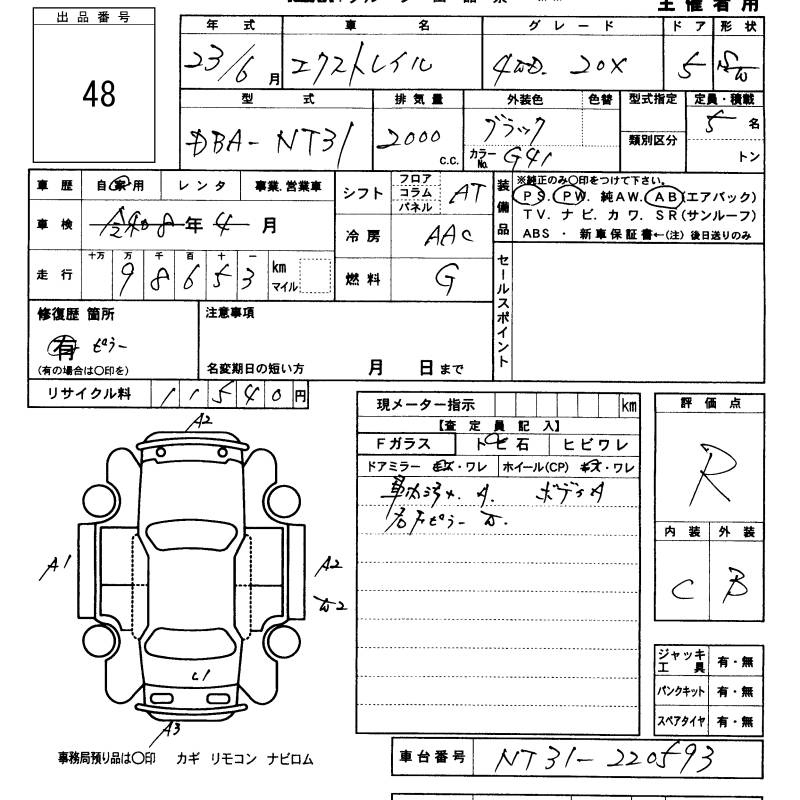 主催者用
出品番号
48
年式 車名 グレード ドア 形状
23/6月 エクストレイル 4WD. 20X 5 S/W
型式 排気量 外装色 色替 型式指定 定員・積載
DBA-NT31 2000 c.c. ブラック 5名
カラーNo. G41 類別区分 トン
車歴 自家用 レンタ 事業.営業車
シフト フロア コラム パネル AT
装備品 ※純正のみ○印をつけて下さい。
PS. PW. 純AW. AB(エアバック)
TV. ナビ. カワ. SR(サンルーフ)
ABS ・ 新車保証書←(注) 後日送りのみ
車検 8年 4月
冷房 AAC
走行 十万 万 千 百 十 一
98653 km マイル
燃料 G
セールスポイント
修復歴 箇所
有 ピラー
(有の場合は○印を)
注意事項
名変期日の短い方 月 日まで
リサイクル料 11540円
現メーター指示 km
【査定員記入】
Fガラス トビ石 ヒビワレ
ドアミラー キズ・ワレ ホイール(CP) キズ・ワレ
車内汚れ. A. ボディA
右Fピラー W.
評価点
R
内装 外装
C B
A2
A1
A2
W2
L1
A3
ジャッキ工具 有・無
パンクキット 有・無
スペアタイヤ 有・無
事務局預り品は○印 カギ リモコン ナビロム
車台番号 NT31-220593